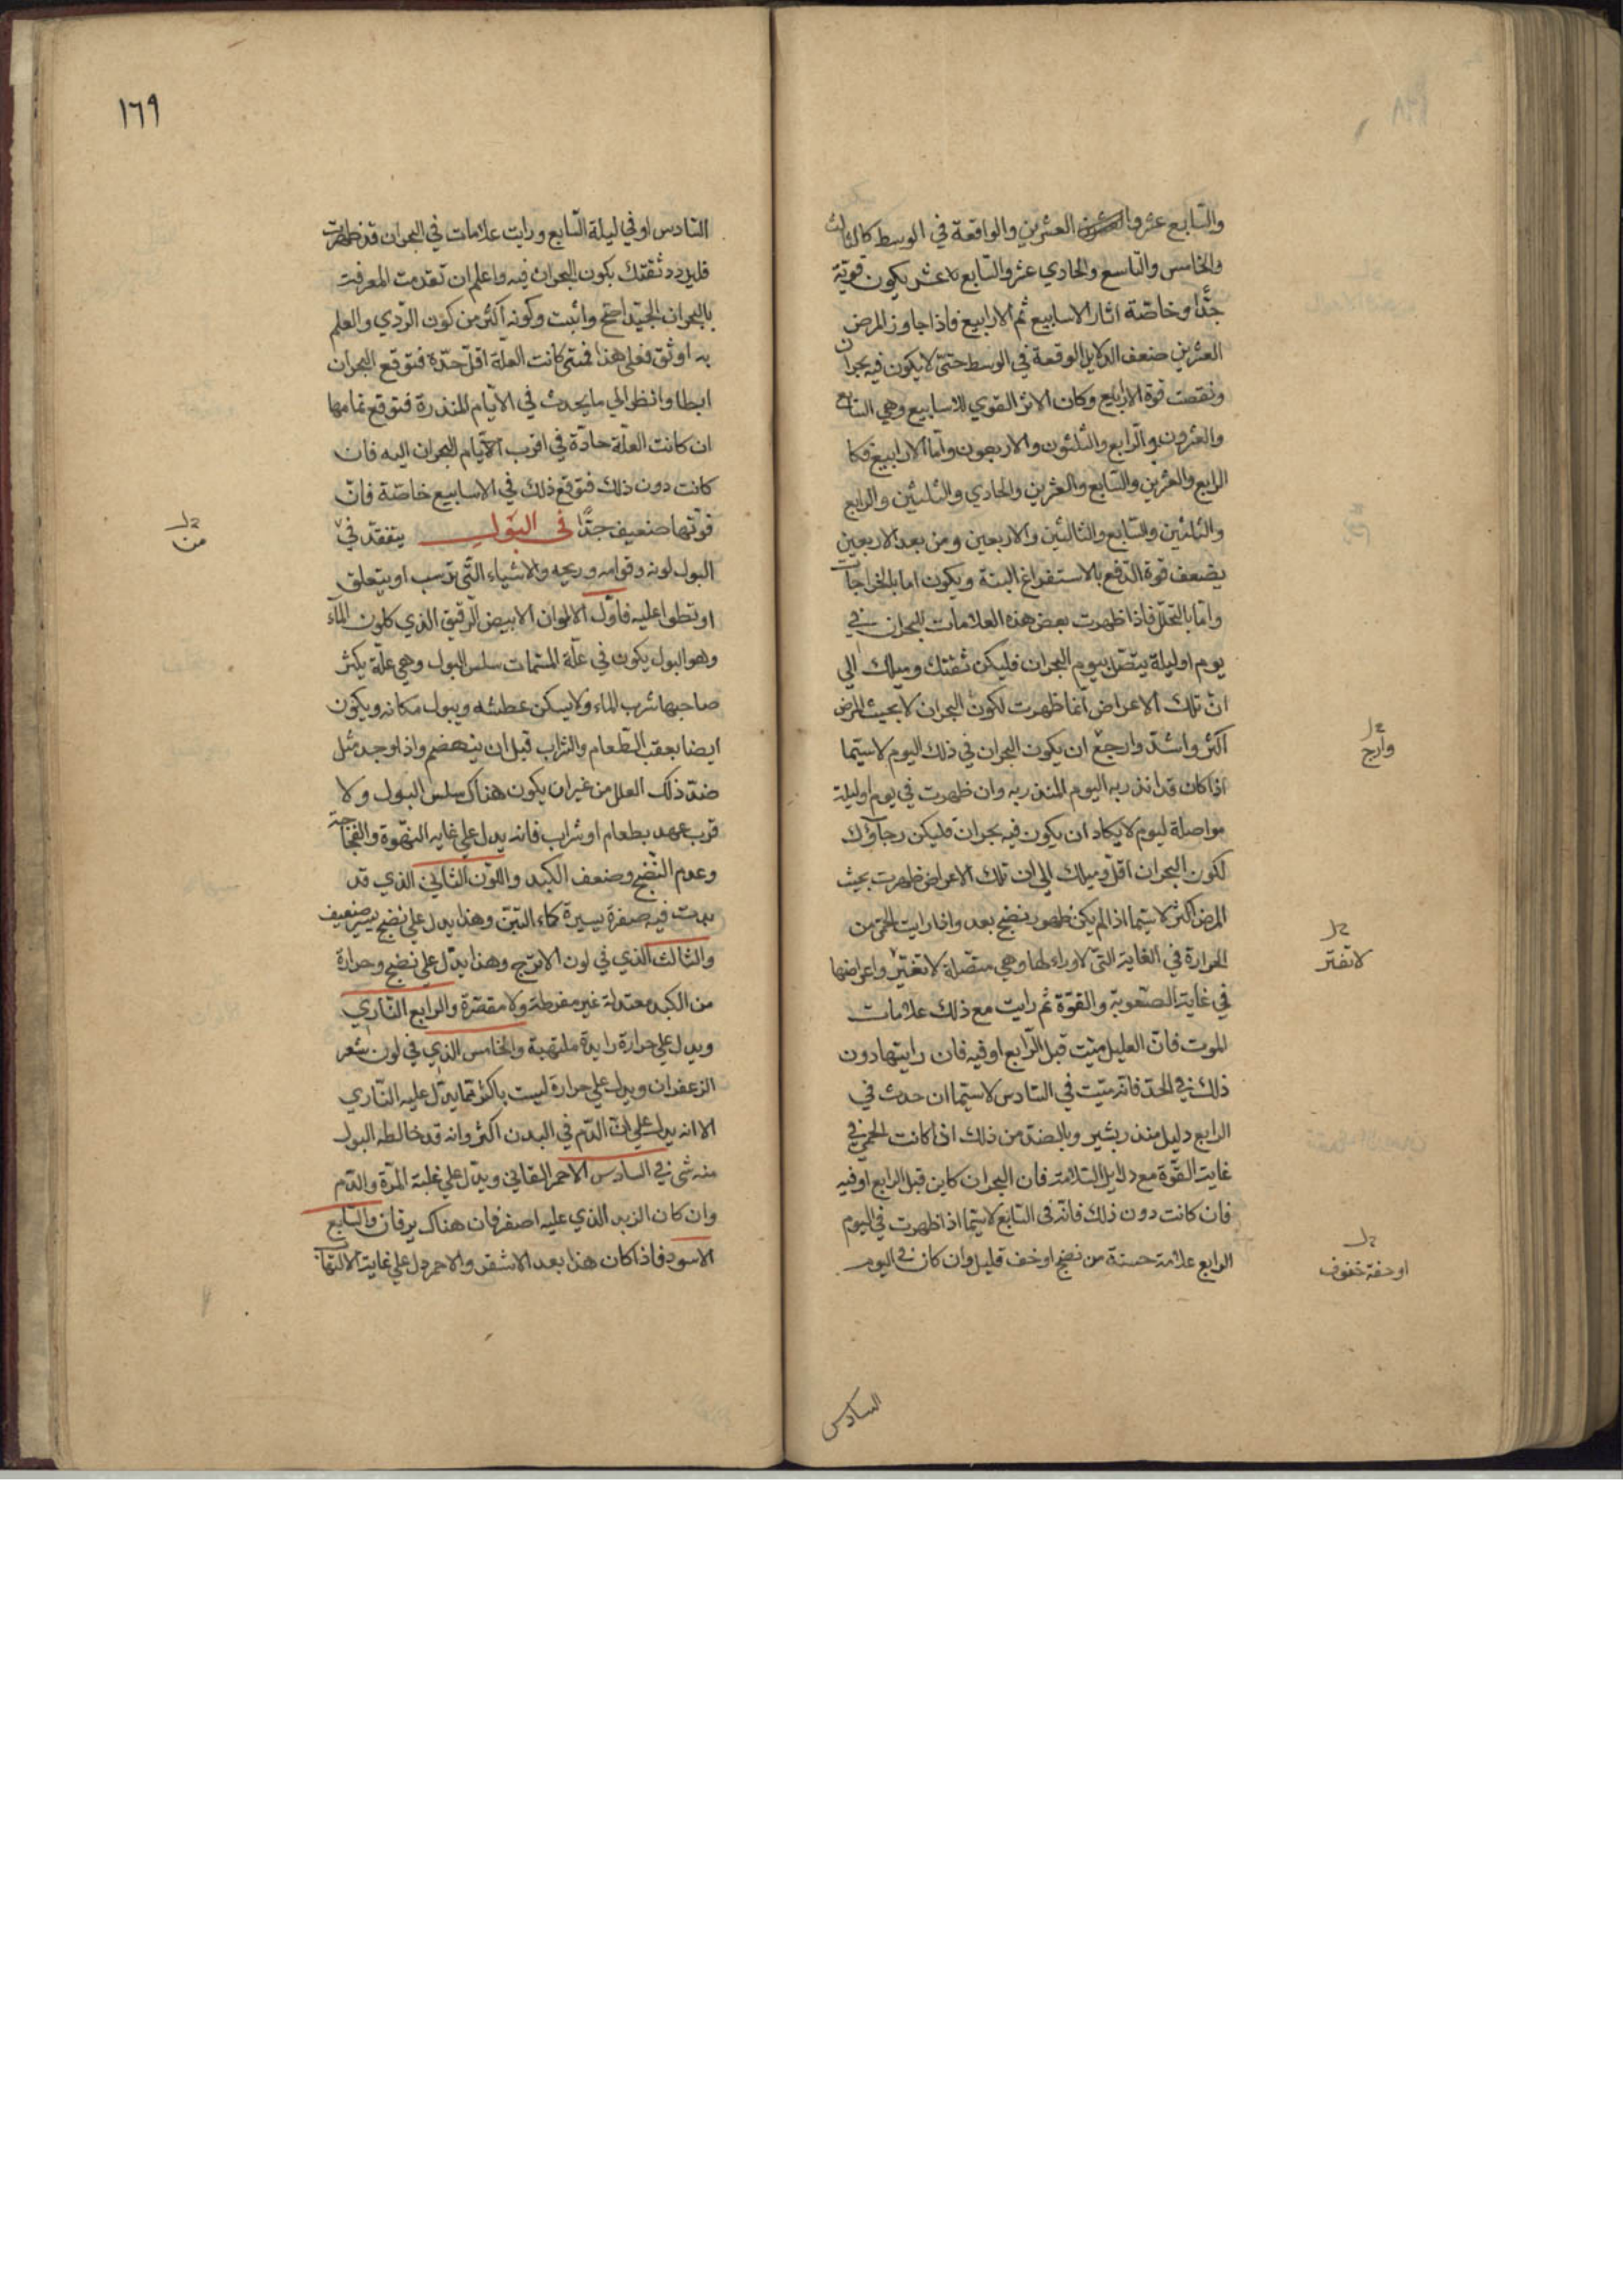 والسابع عشر والعشرين والواقعة في الوسط كالثالث
والخامس والتاسع والحادي عشر والسابع عشر يكون قوية
جدًّا وخاصّة اثار الاسابيع ثم الارابيع فاذا جاوز المرض
العشرين ضعف الدلايل الوقعة في الوسط حتى لا يكون فيه بحران
ونقصت قوة الارابيع وكان الاثر القوي للاسابيع وهي السابع
والعشرون والرابع والثلثون والاربعون واما الارابيع فكا
الرابع والعشرين والسابع والعشرين والحادي والثلثين والرابع
والثلثين والسابع والثالثين والاربعين ومن بعد الاربعين
يضعف قوة الدفع بالاستفراغ البتة ويكون اما بالخراجات
واما بالتحلل فاذا ظهرت بعض هذه العلامات للبحران في
يوم او ليلة يتصل بيوم البحران فليكن ثقتك وميلك الي
انّ تلك الاعراض انما ظهرت لكون البحران لا بحيث المرض
اكثر واشدّ وارجع ان يكون البحران في ذلك اليوم لاسيّما
اذا كان قد انذر به اليوم المنذر به وان ظهرت في يوم او ليلة
مواصلة ليوم لا يكاد ان يكون فيه بحران فليكن رجاؤك
لكون البحران اقلّ وميلك الي ان تلك الاعراض ظهرت بحيث
المرض اكثر لاسيما اذا لم يكن ظهور نضج بعد واذا رايت الحمى من
الحرارة في الغاية التي لا وراء لها وهي متصلة لا تغتير واعراضها
في غاية الصعوبة والقوّة ثم رايت مع ذلك علامات
الموت فانّ العليل ميّت قبل الرابع او فيه فان رايتها دون
ذلك في الحدّ فانه ميّت في السادس لاسيما ان حدث في
الرابع دليل منذر بشير وبالضد من ذلك اذا كانت الحمى في
غاية القوّة مع دلايل السلامة فان البحران كاين قبل الرابع او فيه
فان كانت دون ذلك فانّه في السابع لاسيما اذا ظهرت في اليوم
الرابع علامة حسنة من نضج او خف قليل وان كان في اليوم
السادس
وارج
لا تفتر
او خفة خفوف
١٦٩
السادس او في ليلة السابع ورايت علامات في البحران قد ظهرت
فليزدد ثقتك بكون البحران فيه واعلم ان تقدمت المعرفت
بالبحران الجيّد اصح واثبت وكونه اكثر من كون الرّدي والعلم
به اوثق فعلى هذا فمتى كانت العلة اقلّ حدّة فتوقع البحران
ابطا وانظر الي ما يحدث في الايّام المنذرة فتوقع تمامها
ان كانت العلّة حادّة في اقرب الايّام البحران اليه فان
كانت دون ذلك فتوقع ذلك في الاسابيع خاصّة فانّ
قوّتها ضعيف جدًّا في البول يتفقّد في
البول لونه وقوامه وريحه والاشياء التّي ترسب او يتعلق
او تطفوا عليه فاوّل الالوان الابيض الرقيق الذي كلون الماء
وهو البول يكون في علّة المسمّات سلس البول وهي علّة يكثر
صاحبها شرب الماء ولا يسكن عطشه ويبول مكانه ويكون
ايضا بعقب الطعام والشراب قبل ان ينهضم واذا وجد مثل
ضد ذلك العلل من غير ان يكون هناك سلس البول ولا
قرب عهد بطعام او شراب فانه يدل علي غايه النهوة والفجاجة
وعدم النّضج وضعف الكبد واللون الثاني الذي قد
بدت فيه صفرة يسيرة كماء التبن وهذا يدل علي نضج يسير ضعيف
والثالث الذي في لون الاترج وهذا يدلّ علي نضج وحرارة
من الكبد معتدلة غير مفرطة ولا مقصّرة والرابع النّاري
ويدل علي حرارة زايدة ملتهبة والخامس الذي في لون شعر
الزعفران ويدل علي حرارة ليست باكثر مما يدلّ عليه النّاري
الا انه يدل علي انّ الدّم في البدن اكثر وانه قد خالطه البول
منه شي في السادس الاحمر القاني ويدلّ علي غلبة المرّة والدّم
وان كان الزبد الذي عليه اصفر فان هناك يرقان والسابع
الاسود فاذا كان هذا بعد الاشقر والاحمر دل علي غاية الالتهاب
من